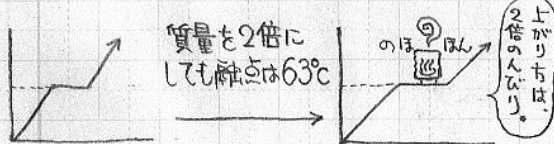 質量を2倍に
しても融点は63℃
のほほん
上がり方は、
2倍のんびり。